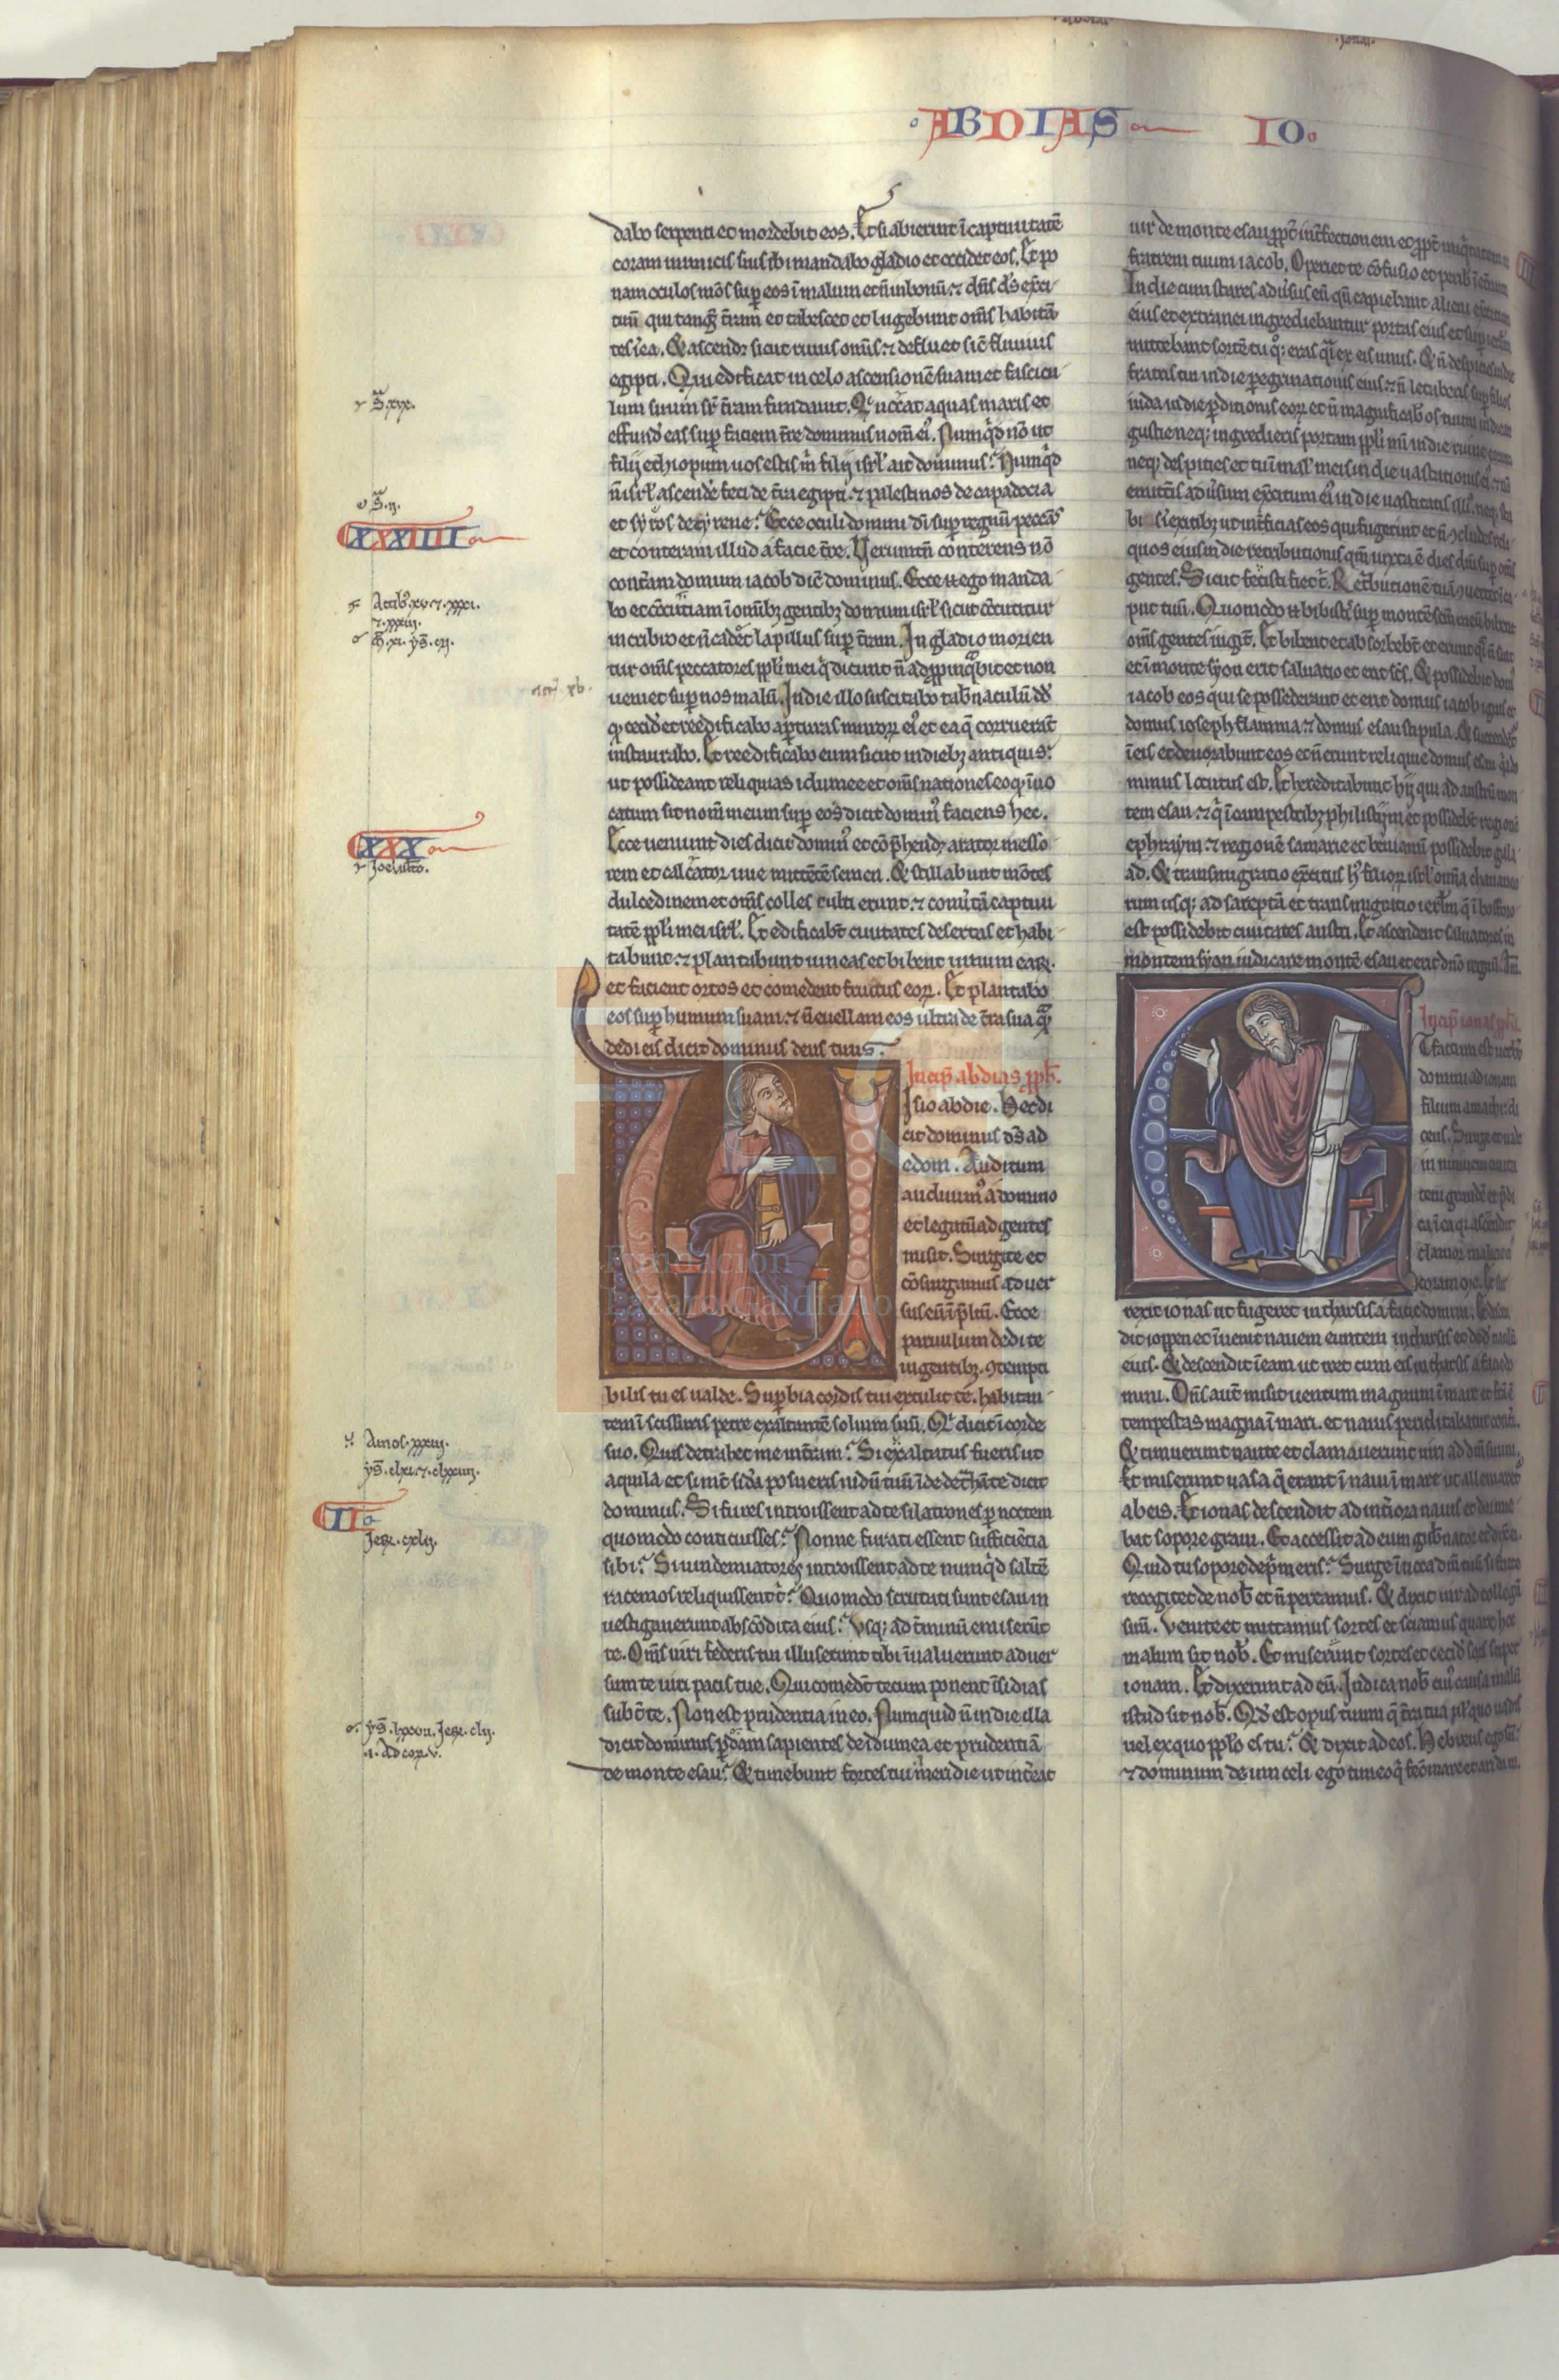 ABDIAS IO
dabo serpenti et mordebit eos. Et si abierint ĩ captiuitatẽ
coram inimicis suis ibi mandabo gladio et occidet eos. Et po
nam oculos mõs sup eos ĩ malum et ñ in bonũ. ⁊ dñs ds exci
tuũ qui tangit t̃ram et tabescet et lugebunt om̃s habitã
tes ĩ ea. & ascendꝫ sicut riuus om̃is ⁊ defluet sic̃ fluuius
egipti. Qui edificat in celo ascensionẽ suam et fascicu
lum suum sr̃ t̃ram fundauit. Qi uocat aquas maris et
effund̃ eas sup faciem t̃re dominus nom̃ ei᷒. Numq̃d nõ ut
filij ethiopum uos estis m̃ filij isrl̃ ait dominus. Numq̃d
ñ isrl̃ ascende᷑ feci de t̃ra egipti ⁊ palestinos de capadocia
et syros de cyrene. Ecce oculi domini dĩ sup regnũ peccãs
et conteram illud a facie t̃re. Veruntñ conterens nõ
cont̃am domum iacob dic̃ dominus. Ecce ego manda
bo et cõcutiam ĩ om̃ibꝫ gentibꝫ domum isrl̃ sicut cõcutitur
in cribro et ñ cadet lapillus sup t̃ram. In gladio morien
tur om̃s peccatores ppl̃i mei q̃ dicunt ñ adppinq̃bit et non
ueniet sup nos malũ. In die illo suscitabo tab̃naculũ dd̃
qͥ cecid̃ et reedificabo apturas muroꝝ ei᷒ et ea q̃ corruerãt
instaurabo. Et reedificabo eum sicut in diebꝫ antiquis.
ut possideant reliquias idumee et om̃s nationes eo qͥ ĩuo
catum sit nom̃ meum sup eos dicit domin᷒ faciens hec.
Ecce ueniunt dies dicit domin᷒ et cõp̃hendꝫ arator messo
rem et calcãtor uue mittẽtẽ semen. & stillabunt mõtes
dulcedinem et om̃s colles culti erunt. ⁊ conu᷑tã captiui
tatẽ ppl̃i mei isrl̃. Et edificabt̃ ciuitates desertas et habi
tabunt. ⁊ plantabunt uineas et bibent uinum eaꝝ.
et facient ortos et comedent fructus eoꝝ. Et plantabo
eos sup humum suam ⁊ ñ euellam eos ultra de t̃ra sua q̃
dedi eis dicit dominus deus tuus.
Incip̃ abdias pph̃.
Visio abdie. Hec di
cit dominus ds̃ ad
edom. Auditum
audiuim᷒ a domino
et legatũ ad gentes
misit. Surgite et
cõsurgamus aduer
sus eũ ĩ p̃liũ. Ecce
paruulum dedi te
in gentibꝫ. ꝯtempti
bilis tu es ualde. Supbia cordis tui extulit te. habitan
tem ĩ scissuris petre exaltantẽ solium suũ. Qi dicit ĩ corde
suo. Quis detrahet me in t̃ram. Si exaltatus fueris ut
aquila et si int̃ sid̃a posueris nidũ tuũ ĩde detrahã te dicit
dominus. Si fures introissent ad te si latrones p noctem
quomodo conticuisses. Nonne furati essent sufficiẽcia
sibi. Si uindemiatores introissent ad te numq̃d saltẽ
racemos reliquissent t̃. Quomodo scrutati sunt esau in
uestigauerunt abscõdita eius. Vsqꝫ ad t̃minũ emiserũt
te. Om̃s uiri federis tui illuserunt tibi ĩualuerunt aduer
sum te uiri pacis tue. Qui comedt̃ tecum ponent ĩsidias
subt̃ te. Non est prudentia in eo. Numquid ñ in die illa
dicit dominus pdam sapientes de idumea et prudentiã
de monte esau. & timebunt fortes tui a meridie ut int̃eat
uir de monte esau ppt̃ int̃fectionem et ppt̃ iniq̃tatem
fratrem tuum iacob. Operiet te cõfusio et perib̃ ĩ et̃num
In die cum stares adu᷑sus eũ qñ capiebant alieni
eius et extranei ingrediebantur portas eius et sup
mittebant sortẽ tu qͦꝫ eras q̃si ex eis unus. & ñ despicies
fratris tui in die pegrinationis eius ⁊ ñ letaberis sup filios
iuda in die pditionis eoꝝ et ñ magnificab̃ os tuum in die
gustie neqꝫ ingredieris portam ppl̃i mei in die ruine
neqꝫ despicies et tu in mal̃ meis in die uastitatis ei᷒
emittẽs adu᷑sum exc̃itum ei᷒ in die uastitatis illi᷒. neqꝫ sta
bis ĩ exitibꝫ ut int̃ficias eos qui fugerint et ñ ꝯcludes reli
quos eius in die tribulationis qm̃ iuxta ẽ dies dñi sup om̃s
gentes. Sicut fecisti fiet t̃. Ret̃butionẽ tuã ꝯuertet ĩ ca
put tuũ. Quomodo bibistis sup montẽ scm̃ meũ bibent
om̃s gentes iugit̃. Et bibent et absorbebt̃ et erunt q̃si ñ sint
et ĩ monte syon erit saluatio et erit scs̃. & possidebit dom᷒
iacob eos qui se possederant et erit domus iacob ignis et
domus ioseph flamma ⁊ domus esau stipula. & succendẽt᷑
ĩ eis et deuorabunt eos et ñ erunt reliquie domus esau q̃ do
minus locutus est. Et hereditabunt hij qui ad austrũ mon
tem esau ⁊ q̃ ĩ campestribꝫ philistijm et possidebt̃ regionẽ
ephraym ⁊ regionẽ samarie et beniamin possidebit gala
ad. & transmigratio exc̃itus h᷒ filioꝝ isrl̃ om̃ia chananeo
rum usqꝫ ad sareptã et transmigratio ierl̃m q̃ ĩ bosforo
est possidebit ciuitates austri. Et ascendent saluatores in
montem syon iudicare montẽ esau et erit dño regnũ. Am̃
Incip̃ ionas ph̃a.
Et factum est uerbũ
domini ad ionam
filium amathi di
cens. Surge et uade
in niniuem ciuita
tem grandẽ et p̃di
ca ĩ ea qi ascendit
clamor malicie
coram me. Et sur
rexit ionas ut fugeret in tharsis a facie domini. Et descen
dit ioppen et ĩuenit nauem euntem in tharsis et dedit naulũ
eius. & descendit ĩ eam ut iret cum eis in tharsis a facie do
mini. Dñs aut̃ misit uentum magnum ĩ mare et fc̃a ẽ
tempestas magna ĩ mari. et nauis periclitabatur conteri.
& timuerunt naute et clamauerunt uiri ad dm̃ suum.
Et miserunt uasa q̃ erant ĩ naui ĩ mare ut alleuiaret᷑
ab eis. Et ionas descendit ad int̃iora nauis et dormie
bat sopore graui. Et accessit ad eum gub̃nator et dixit ei.
Quid tu sopore dep̃meris. Surge ĩuoca dm̃ tuũ si forte
recogitet de nob̃ et ñ pereamus. & dixit uir ad collegã
suũ. Venite et mittamus sortes et sciamus quare hoc
malum sit nob̃. Et miserunt sortes et cecid̃ sors super
ionam. Et dixerunt ad eũ. Indica nob̃ cui᷒ causa malũ
istud sit nob̃. Qd̃ est opus tuum q̃ t̃ra tua ul̃ quo uadis
uel ex quo pplo es tu. & dixit ad eos. Hebreus ego sũ.
⁊ dominum deum celi ego timeo q̃ fecit mare et aridam.
XXXIIII
XXX
Joel
Amos. xxxiij.
II
Jeꝝ. cxlij.
Fundación
Lázaro Galdiano